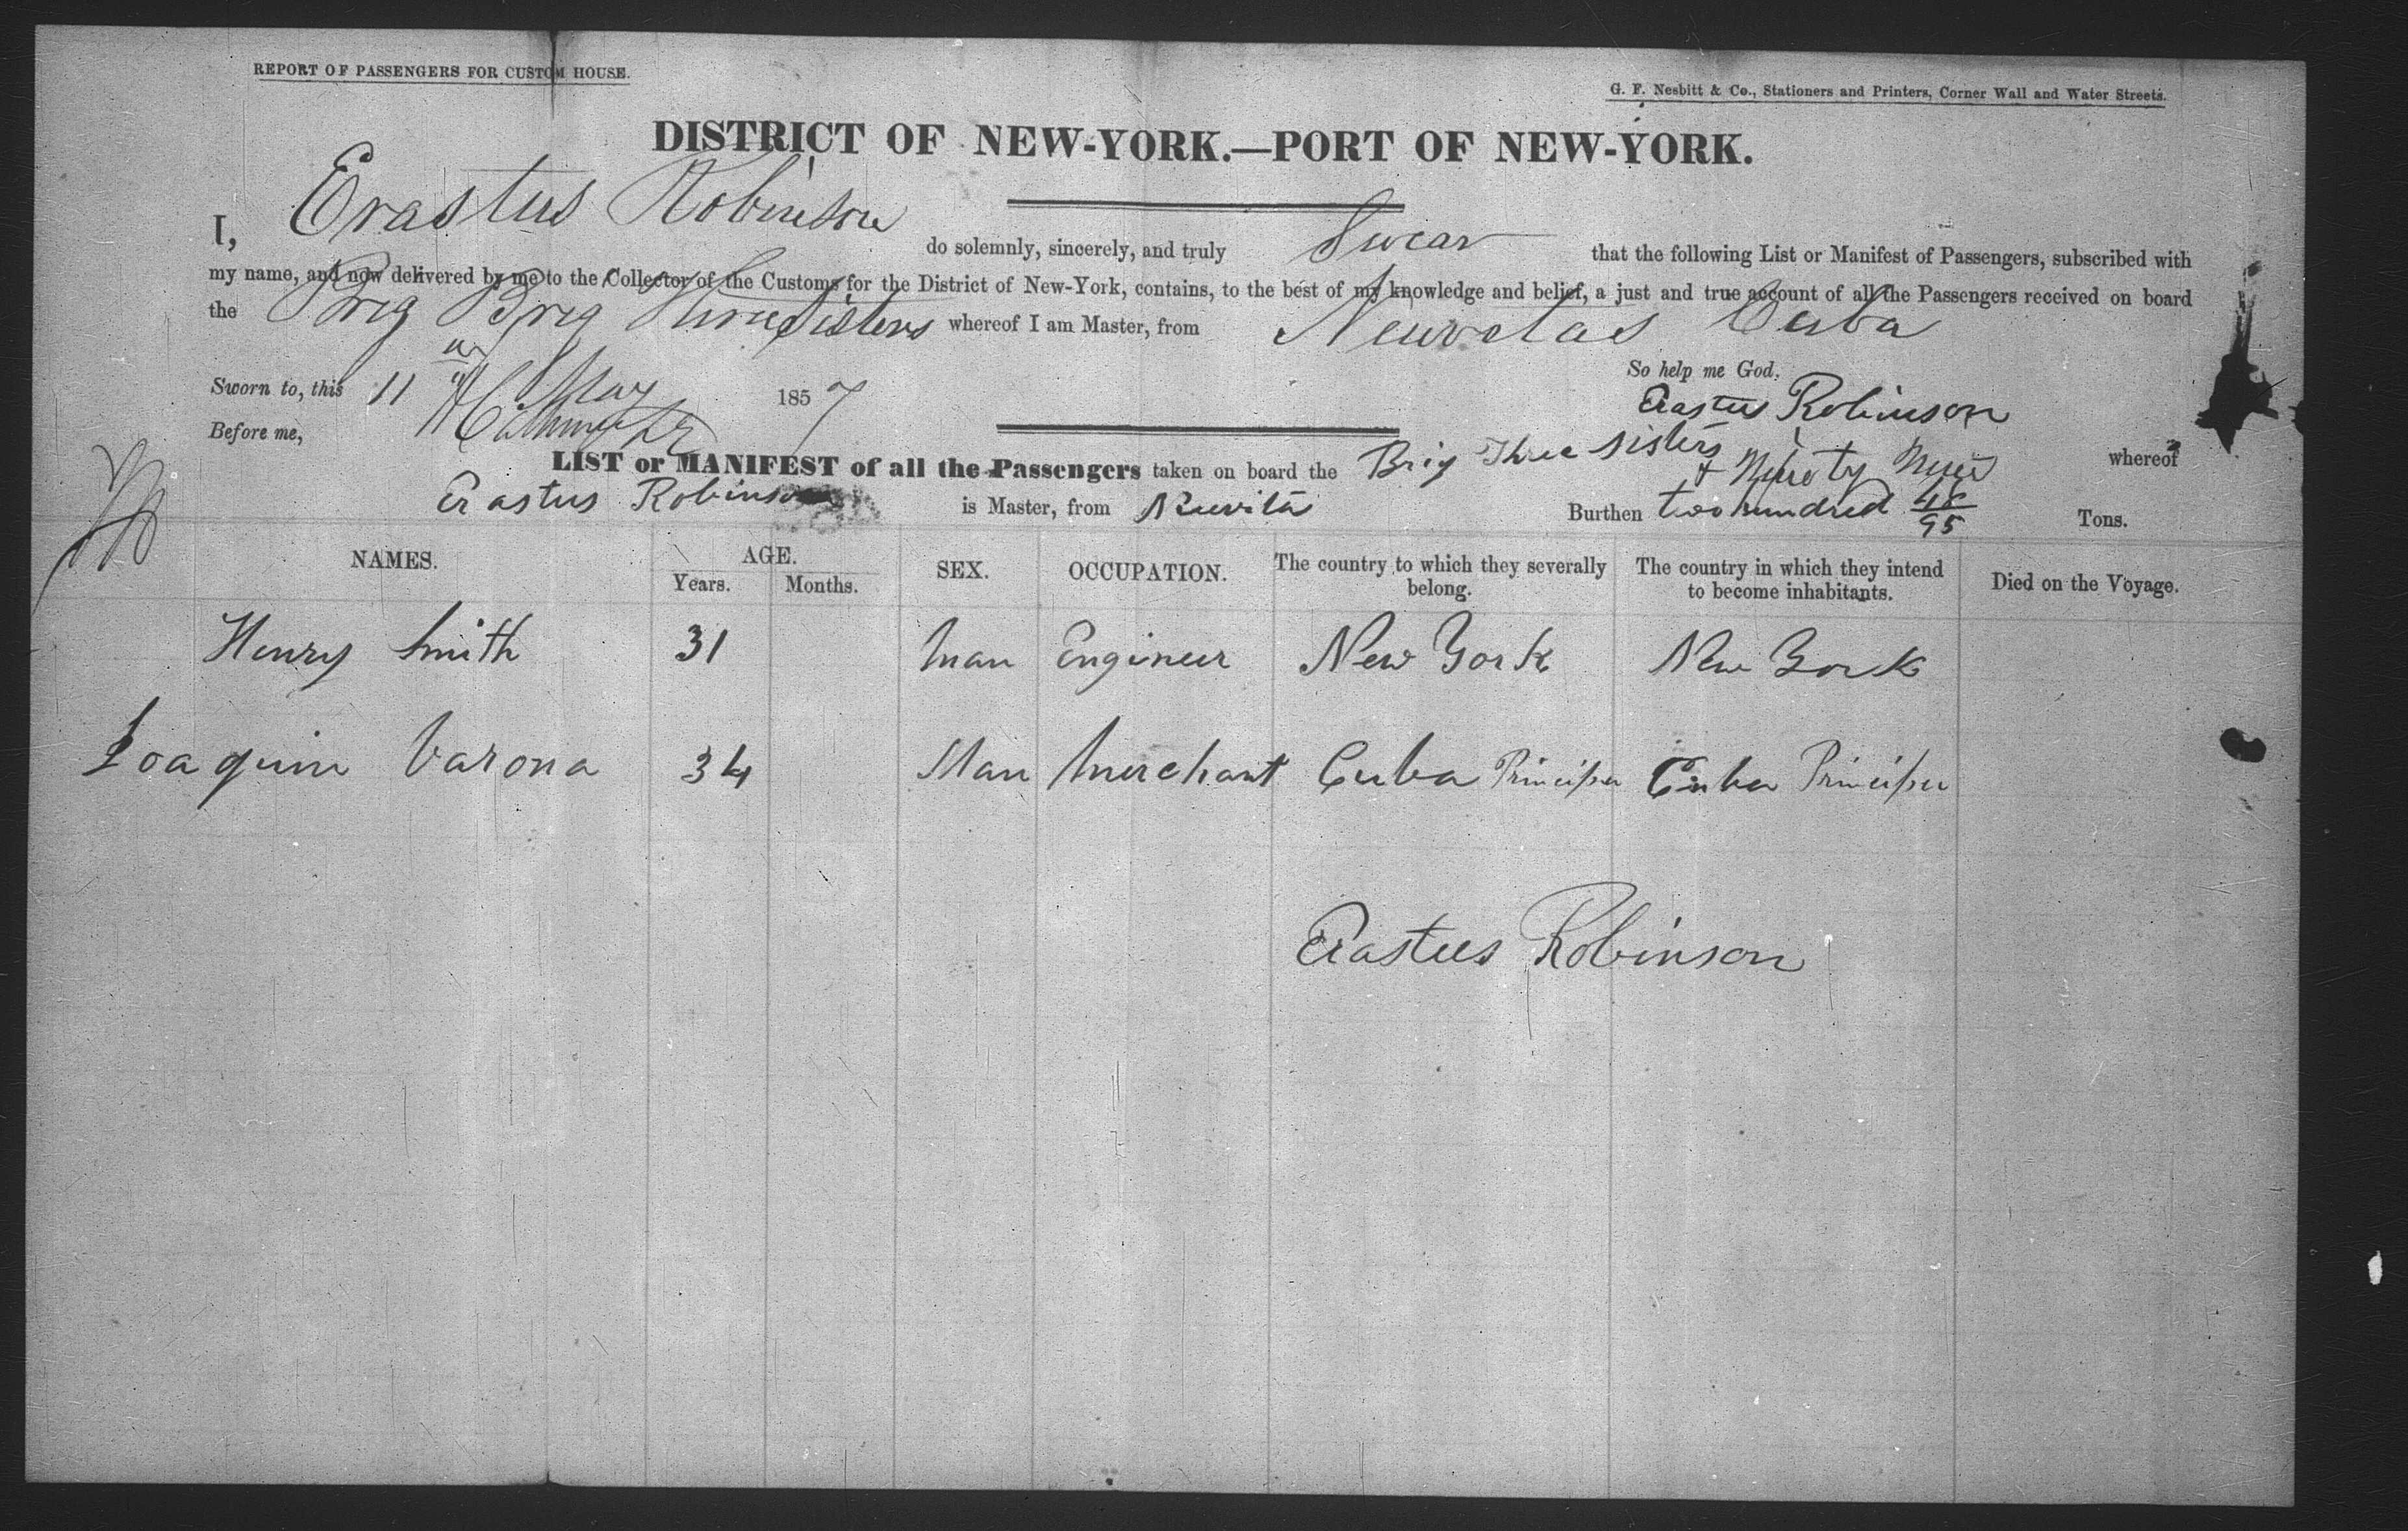 REPORT OF PASSENGERS FOR CUSTOM HOUSE.
G. F. Nesbitt & Co., Stationers and Printers, Corner Wall and Water Streets.
DISTRICT OF NEW-YORK.—PORT OF NEW-YORK.
I, Erastus Robinson do solemnly, sincerely, and truly Swear that the following List or Manifest of Passengers, subscribed with
my name, and now delivered by me to the Collector of the Customs for the District of New-York, contains, to the best of my knowledge and belief, a just and true account of all the Passengers received on board
the Brig Brig Three Sisters whereof I am Master, from Neuvetas Cuba
So help me God.
Sworn to, this 11 May 1857
Erastus Robinson
Before me,
LIST or MANIFEST of all the Passengers taken on board the Brig Three Sisters whereof
Erastus Robinson is Master, from Neuvita Burthen two hundred & Ninety Nine 48/95 Tons.
NAMES. AGE. SEX. OCCUPATION. The country to which they severally belong. The country in which they intend to become inhabitants. Died on the Voyage.
Years. Months.
Henry Smith 31 Man Engineer New York New York
Joaquin Varona 34 Man Merchant Cuba Principe Cuba Principe
Erastus Robinson